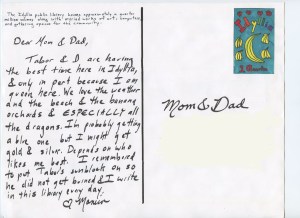 The Idyllia public library houses approximately a quarter
million volumes along with myriad works of art, bequests,
and gathering spaces for the community.
Dear Mom & Dad,
Tabor & I are having
the best time here in Idyllia,
& only in part because I am
queen here. We love the weather
and the beach & the banana
orchards & ESPECIALLY all
the dragons. I'm probably getting
a blue one but I might get
gold & silver. Depends on who
likes me best. I remembered
to put Tabor's sunblock on so
he did not get burned & I write
in this library every day.
Mom & Dad